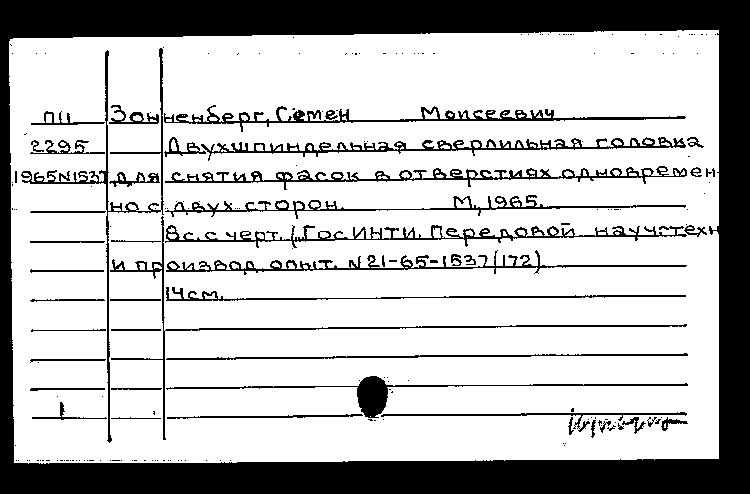 П11 Зонненберг, Семен Моисеевич
2295 Двухшпиндельная сверлильная головка
1965N1537 для снятия фасок в отверстиях одновремен-
но с двух сторон. М., 1965.
8с. с черт. (ГосИНТИ. Передовой науч-техн
и производ. опыт. N21-65-1537/172)
14 см.
1